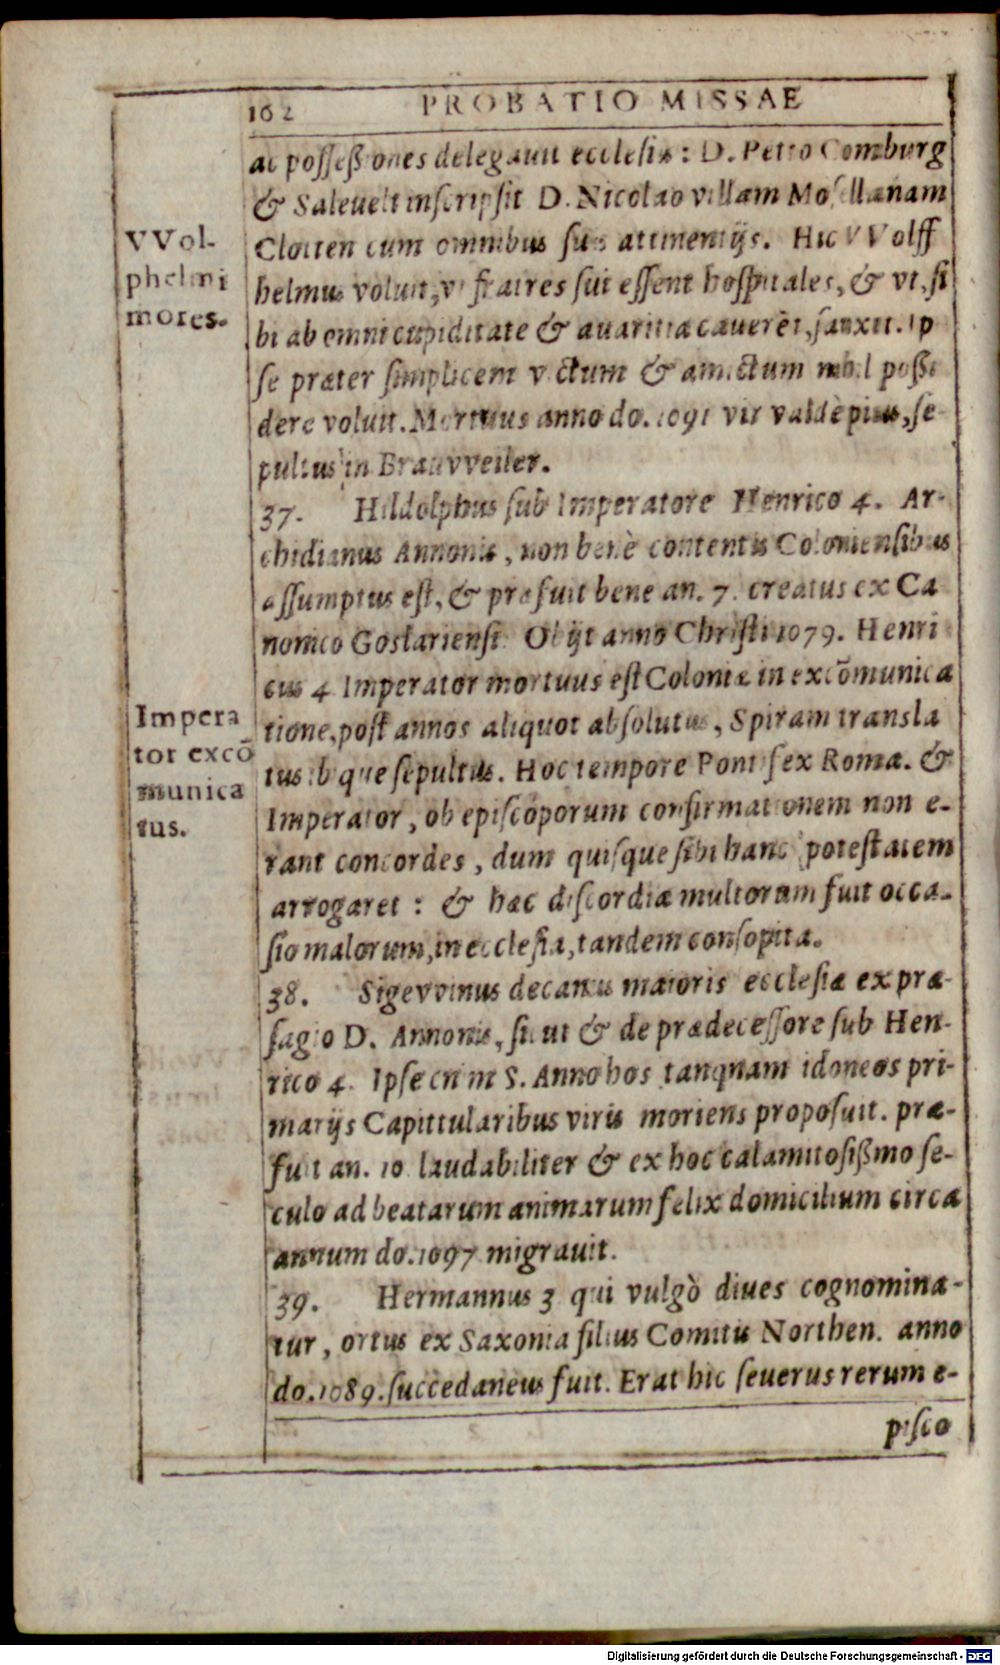 162 PROBATIO MISSAE
ac possessiones delegauit ecclesiæ: D. Petro Comburg
& Saleuelt inscripsit D. Nicolao villam Mosellanam
Clotten cum omnibus suis attinentijs. Hic VVolff
helmus voluit, vt fratres sui essent hospitales, & vt, si
bi ab omni cupiditate & auaritia cauerēt, sanxit. Ip
se præter simplicem victum & amictum nihil possi
dere voluit. Mortuus anno do. 1091 vir valdè pius, se
pultus in Brauvveiler.
VVol-
phelmi
mores.
37. Hildolphus sub Imperatore Henrico 4. Ar-
chidianus Annonis, non benè contentis Coloniensibus
assumptus est, & præfuit bene an. 7. creatus ex Ca
nonico Goslariensi. Obijt anno Christi 1079. Henri
cus 4. Imperator mortuus est Coloniæ in excōmunica
tione, post annos aliquot absolutus, Spiram transla
tus ibique sepultus. Hoc tempore Pontifex Roma. &
Imperator, ob episcoporum confirmationem non e-
rant concordes, dum quisque sibi hanc potestatem
arrogaret: & hæc discordiæ multorum fuit occa-
sio malorum, in ecclesia, tandem consopita.
Impera
tor excō
munica
tus.
38. Sigevvinus decanus maioris ecclesiæ ex præ-
sagio D. Annonis, sicut & de prædecessore sub Hen-
rico 4. Ipse enim S. Anno hos tanquam idoneos pri-
marijs Capittularibus viris moriens proposuit. præ-
fuit an. 10 laudabiliter & ex hoc calamitosißmo se-
culo ad beatarum animarum felix domicilium circa
annum do. 1097 migrauit.
39. Hermannus 3 qui vulgò diues cognomina-
tur, ortus ex Saxonia filius Comitis Northen. anno
do. 1089. succedaneus fuit. Erat hic seuerus rerum e-
pisco
Digitalisierung gefördert durch die Deutsche Forschungsgemeinschaft - DFG